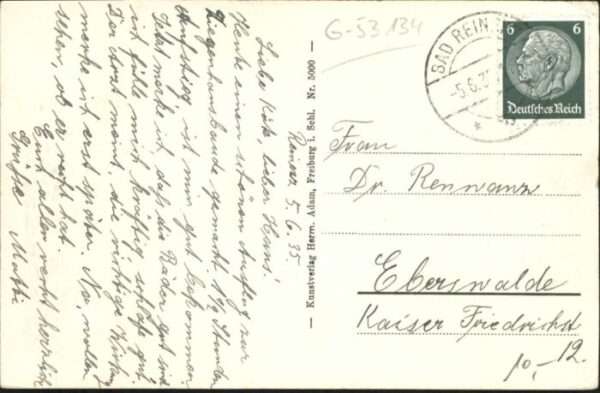 Reinerz 5.6.35
Liebe Käte, lieber Hans!
Heute einen schönen Ausflug zur
Ziegenhausbaude gemacht 1 1/2 Stunden
Aufstieg ist mir gut bekommen.
Jetzt merke ich, daß die Bäder gut sind
ich fühle mich kräftig, schlafe gut.
Der Arzt meint, die richtige Wirkung
merke ich erst später. Na, wollen
sehen, ob er recht hat.
Euch allen recht herzliche
Grüße Mutti
— Kunstverlag Herm. Adam, Freiburg i. Schl. Nr. 5000 —
G-53 134
BAD REIN
-5.6.3
6 6
Deutsches Reich
Frau
Dr. Rennwanz
Eberswalde
Kaiser Friedrichst
12.
10,-